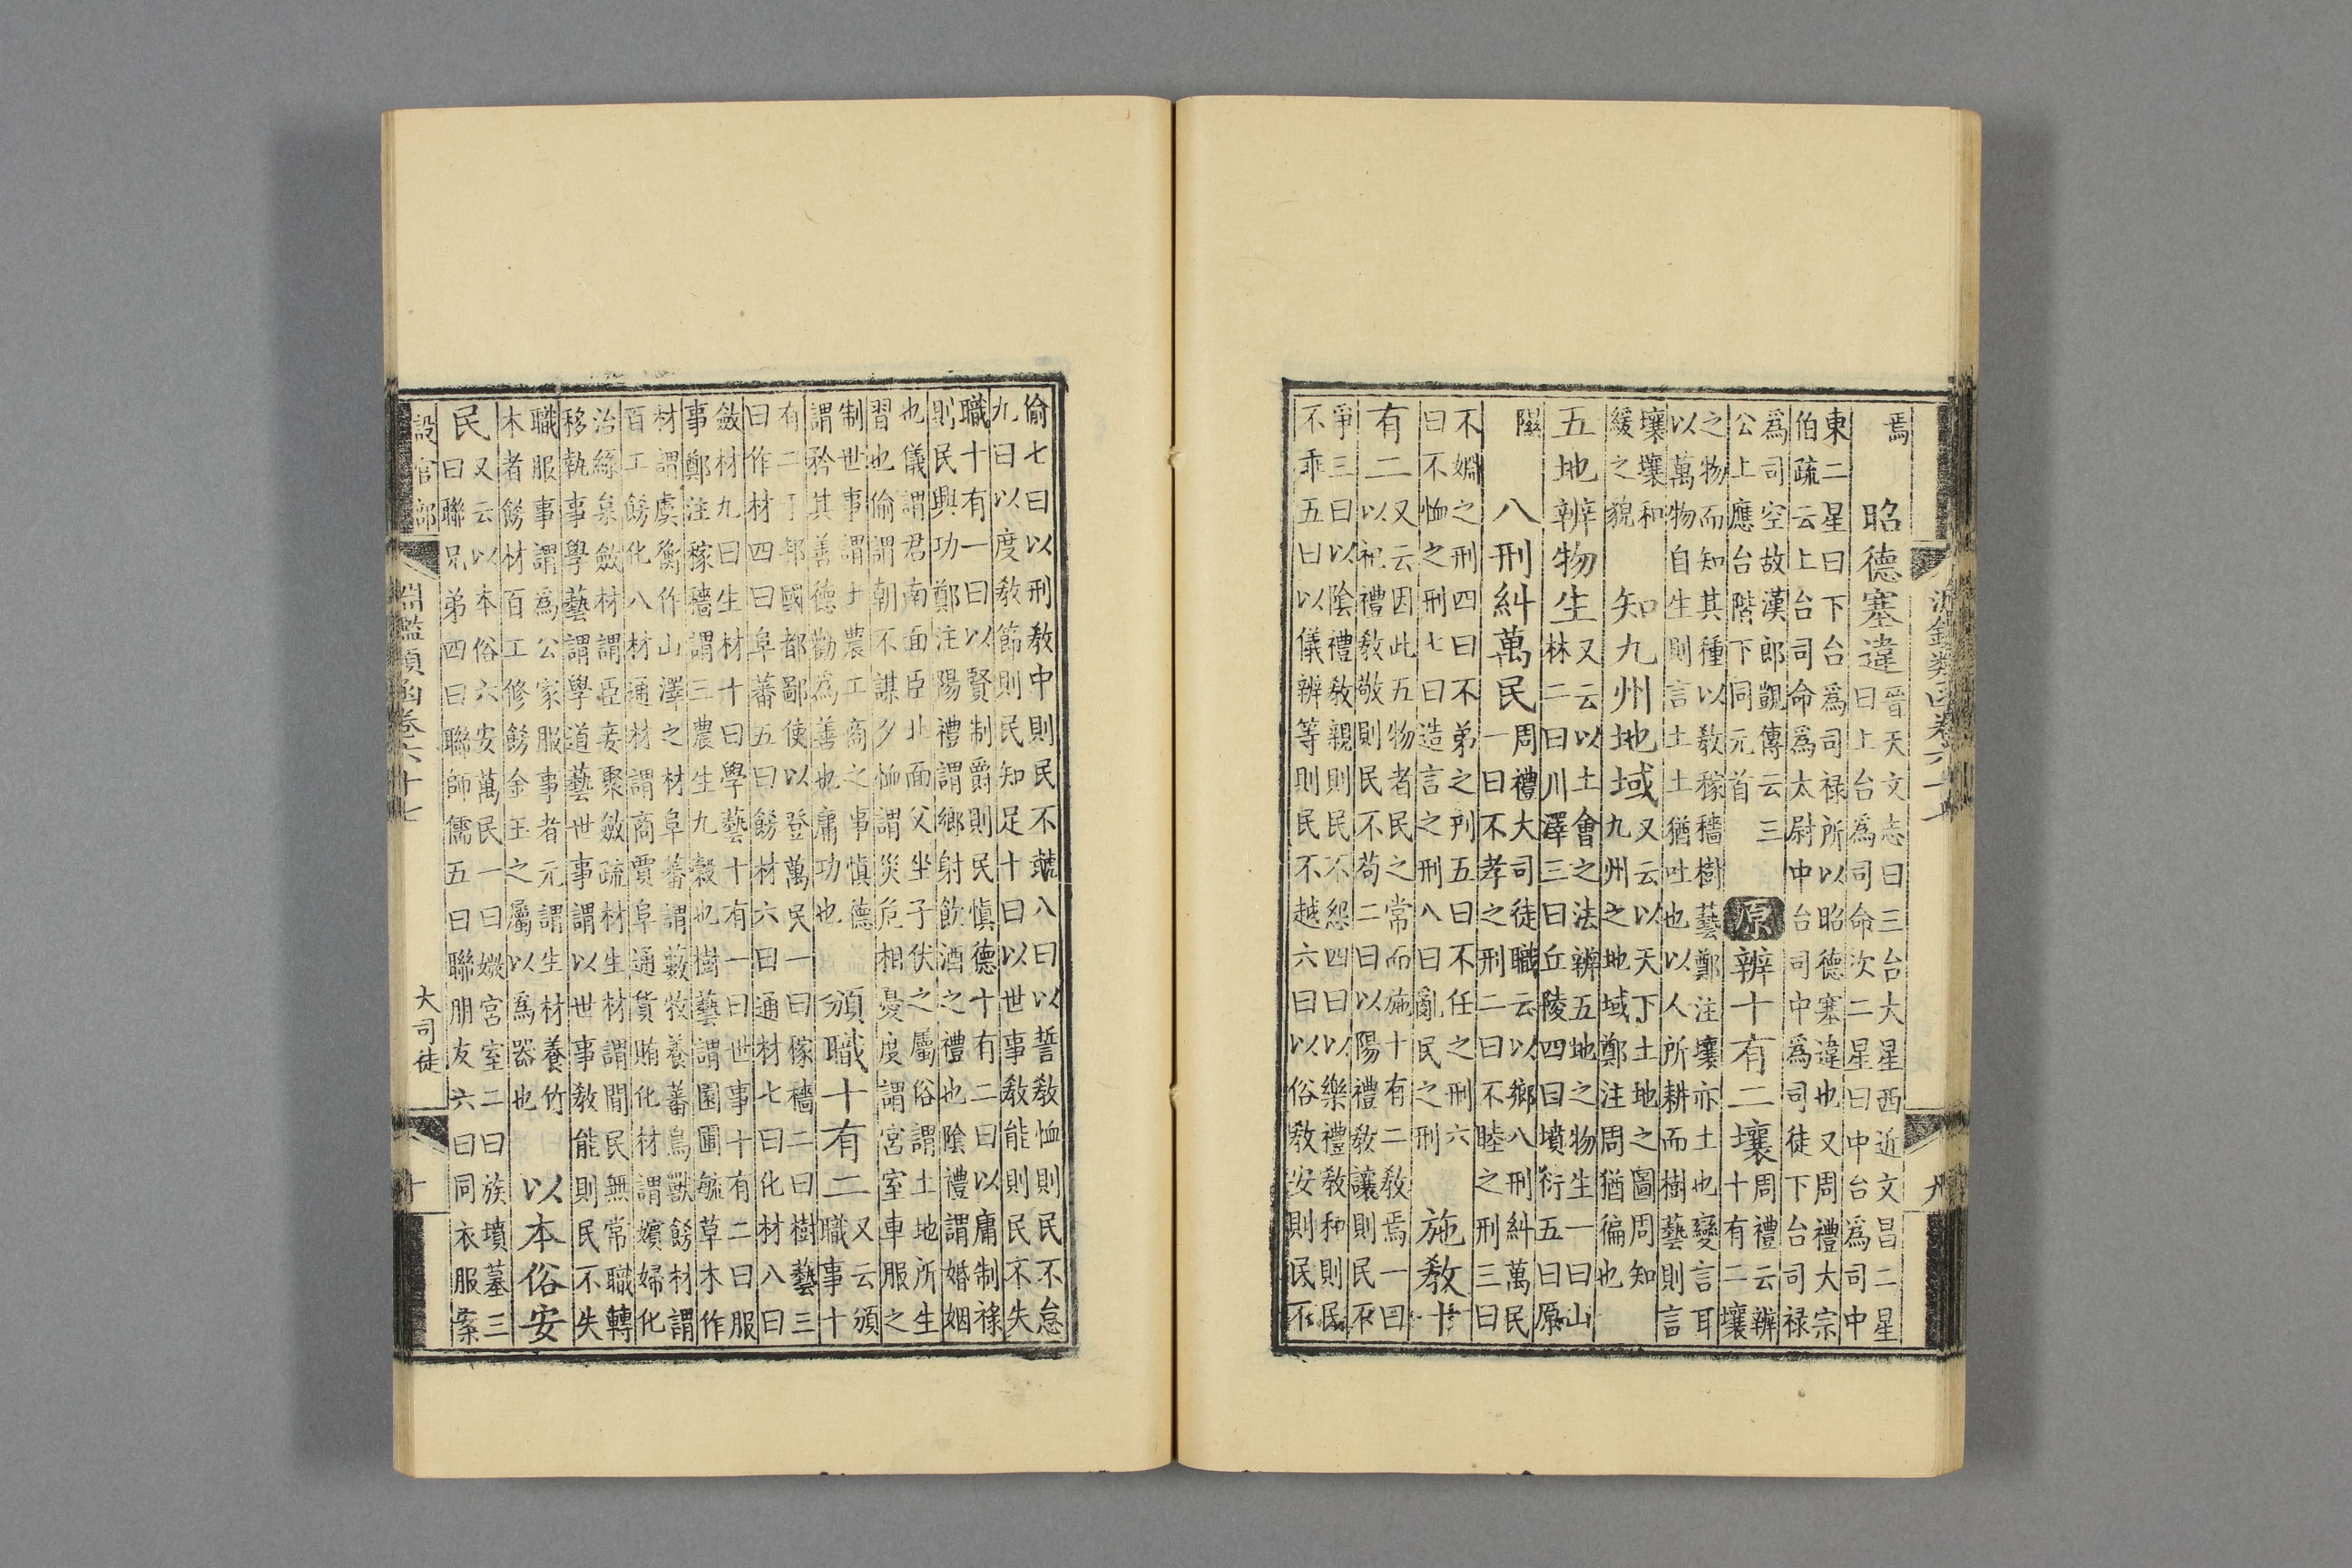 淵鑑類函卷六十七 九
焉
昭德塞違
晉天文志曰三台大星西近文昌二星
曰上台為司命次二星曰中台為司中
東二星曰下台為司禄所以昭德塞違也又周禮大宗
伯疏云上台司命為太尉中台司中為司徒下台司禄
為司空故漢郎覬傳云三
公上應台階下同元首
原 辨十有二壤
周禮云辨
十有二壤
之物而知其種以敎稼穡樹藝鄭注壤亦土也變言耳
以萬物自生則言土土猶吐也以人所耕而樹藝則言
壤壤和
緩之貌
知九州地域
又云以天下土地之圖周知
九州之地域鄭注周猶徧也
五地辨物生
又云以土會之法辨五地之物生一曰山
林二曰川澤三曰丘陵四曰墳衍五曰原
隰
八刑糾萬民
周禮大司徒職云以鄉八刑糾萬民
一曰不孝之刑二曰不睦之刑三曰
不婣之刑四曰不弟之刑五曰不任之刑六
曰不恤之刑七曰造言之刑八曰亂民之刑
施敎十
有二
又云因此五物者民之常而施十有二敎焉一曰
以祀禮敎敬則民不苟二曰以陽禮敎讓則民不
爭三曰以陰禮敎親則民不怨四曰以樂禮敎和則民
不乖五曰以儀辨等則民不越六曰以俗敎安則民不
偷七曰以刑敎中則民不虣八曰以誓敎恤則民不怠
九曰以度敎節則民知足十曰以世事敎能則民不失
職十有一曰以賢制爵則民慎德十有二曰以庸制禄
則民興功鄭注陽禮謂鄉射飲酒之禮也陰禮謂婚姻
也儀謂君南面臣北面父坐子伏之屬俗謂土地所生
習也偷謂朝不謀夕恤謂災危相憂度謂宮室車服之
制世事謂士農工商之事慎德
謂矜其善德勸為善也庸功也
頒職十有二
又云頒
職事十
有二于邦國都鄙使以登萬民一曰稼穡二曰樹藝三
曰作材四曰阜蕃五曰飭材六曰通材七曰化材八曰
斂材九曰生材十曰學藝十有一曰世事十有二曰服
事鄭注稼穡謂三農生九穀也樹藝謂園圃毓草木作
材謂虞衡作山澤之材阜蕃謂藪牧養蕃鳥獸飭材謂
百工飭化八材通材謂商賈阜通貨賄化材謂嬪婦化
治絲枲斂材謂臣妾聚斂疏材生材謂閒民無常職轉
移執事學藝謂學道藝世事謂以世事敎能則民不失
職服事謂為公家服事者元謂生材養竹
木者飭材百工修飭金玉之屬以為器也
以本俗安
民
又云以本俗六安萬民一曰媺宮室二曰族墳墓三
曰聯兄弟四曰聯師儒五曰聯朋友六曰同衣服案
設官部 淵鑑類函卷六十七 大司徒 十